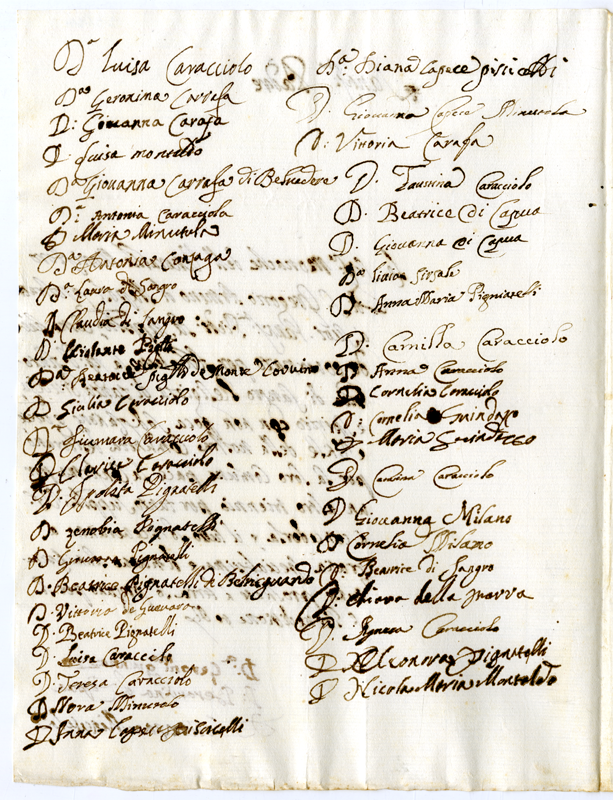 Dª Luisa Caracciolo
Dª Geronima Carrafa
D: Giovanna Carafa
D. Luisa montalto
Dª Giovanna Carrafa di Belvedere
Dª Antonia Caracciola
D Maria Minutula
Dª Antonia Gonzaga
Dª Laura di Sangro
D Claudia di Sangro
D. Violante
Dª Beatrice de Monte Corvino
D. Giulia Caracciolo
D. Caracciolo
D. Clarice Caracciolo
D. Ipolita Pignatelli
Dª Zenobia Pignatelli
D. Ginevra Pignatelli
D. Beatrice Pignatelli di Belriguardo
D. Vittoria de Guevara
D. Beatrice Pignatelli
D. Luisa Caracciolo
D. Teresa Caracciolo
D. Minutolo
D. Anna Capece
Dª Diana Capece piscicelli
D. Giovanna Capece Minutola
D: Vittoria Carafa
D. Faustina Caracciolo
D. Beatrice di Capua
D. Giovanna di Capua
Dª Sersale
D. Anna Maria Pignatelli
D. Camilla Caracciolo
D. Anna Caracciolo
D. Cornelia Caracciolo
D. Cornelia Guindazo
D. Maria Guindazzo
D. Caracciolo
D. Giovanna Milano
D. Cornelia Milano
D. Beatrice di Sangro
D. Chiara della marra
D. Caracciolo
D. Eleonora Pignatelli
D. Nicola Maria Montalto